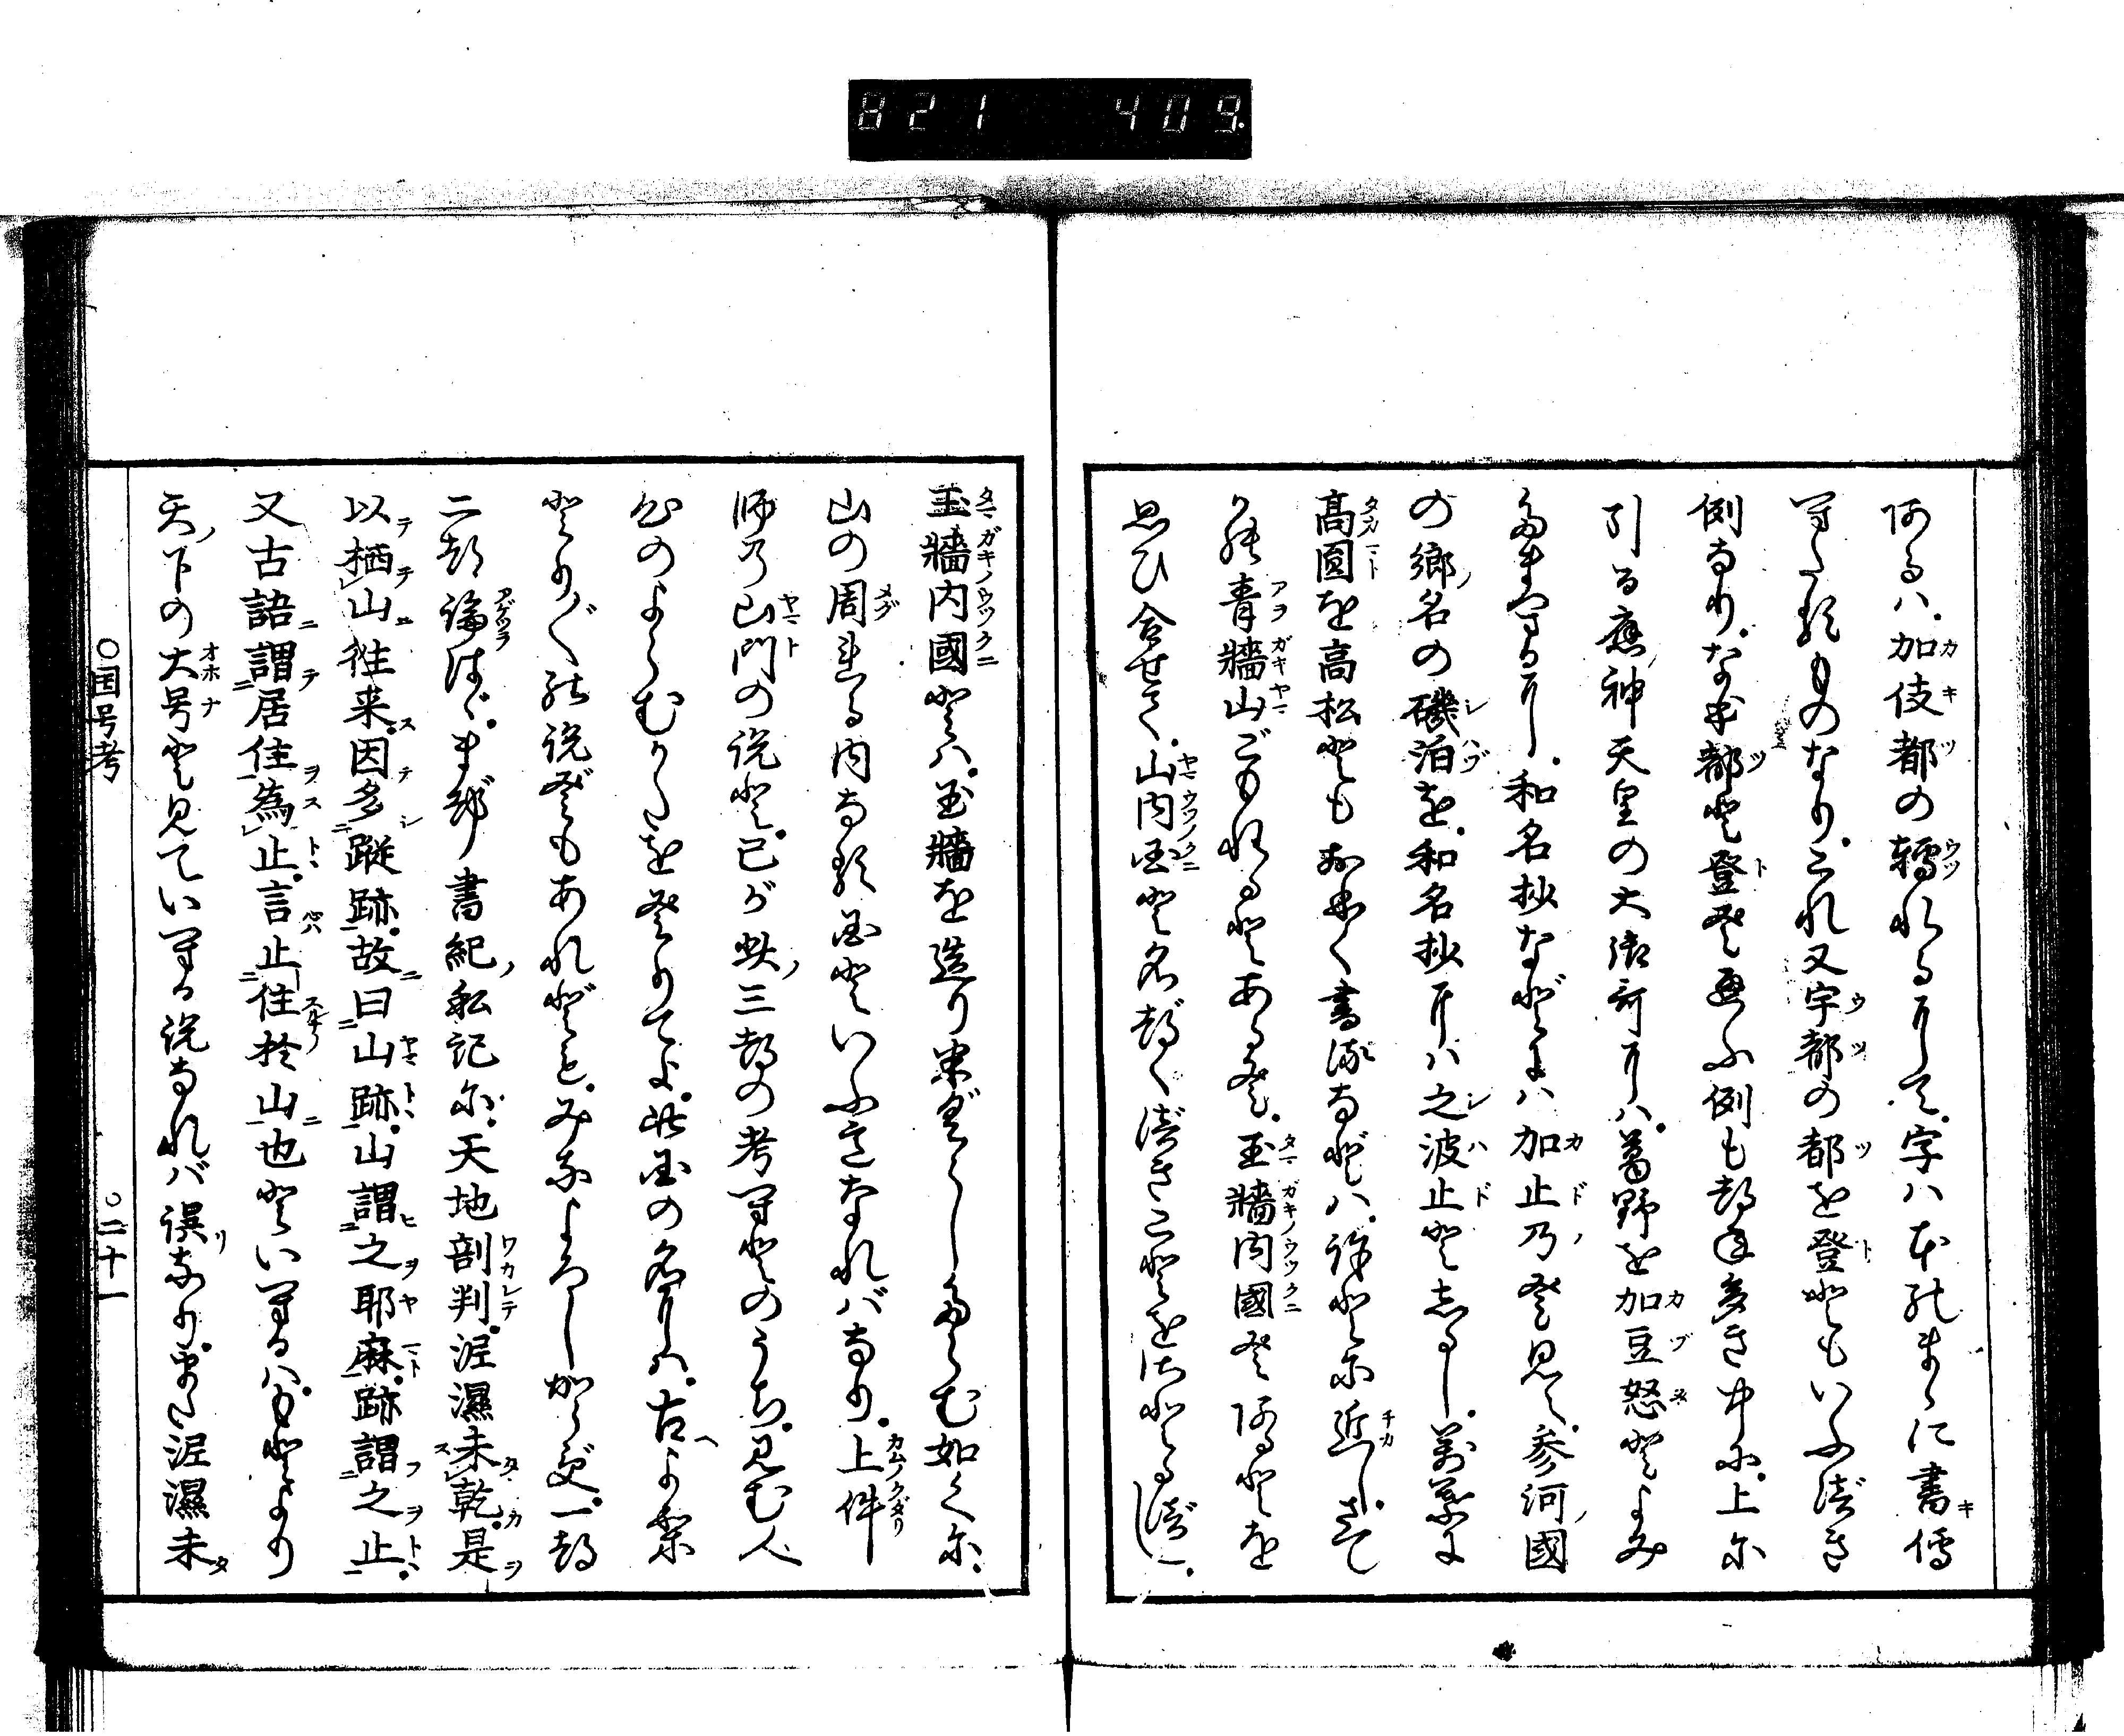 821 409.
あるハ.加伎都の轉れるにて.字ハ本のまゝに書傳
へたるものなり.これ又宇都の都を登ともいふべき
例なり.なほ都と登と通ふ例も殊に多き中に.上に
引る應神天皇の大御哥にハ.葛野を加豆怒とよみ
たまへるに.和名抄などにハ加止乃と見え.参河國
の郷名の磯泊を.和名抄にハ之波止としるし.萬葉に
高圓を高松ともおほく書るなどハ.許と尓近し.さて
かの青牆山ごもれるとあると.玉牆内國とあるとを
思ひ合せて.山内国と名づくべきことをさとるべし.
玉牆内國とハ.玉牆を造り廻ぐらしたらむ如くに.
山の周れる内なる国といふ意なれバなり.上件
師乃山門の説と.己が此三つの考へとのうち.見む人
心のよらむかたをとりてよ.此国の名にハ.古より繁
とり〴〵の説どもあれども.みなよろしからず.一つ
二つ論はゞ.まづ書紀私記に.天地剖判.泥濕未乾.是
以栖山往来.因多蹤跡.故曰山跡.山謂之耶麻.跡謂之止.
又古語謂居住為止.言止住於山也といへるハ.もとより
天下の大号と見ていへる説なれバ誤なり.又泥濕未
〇国号考
〇二十一